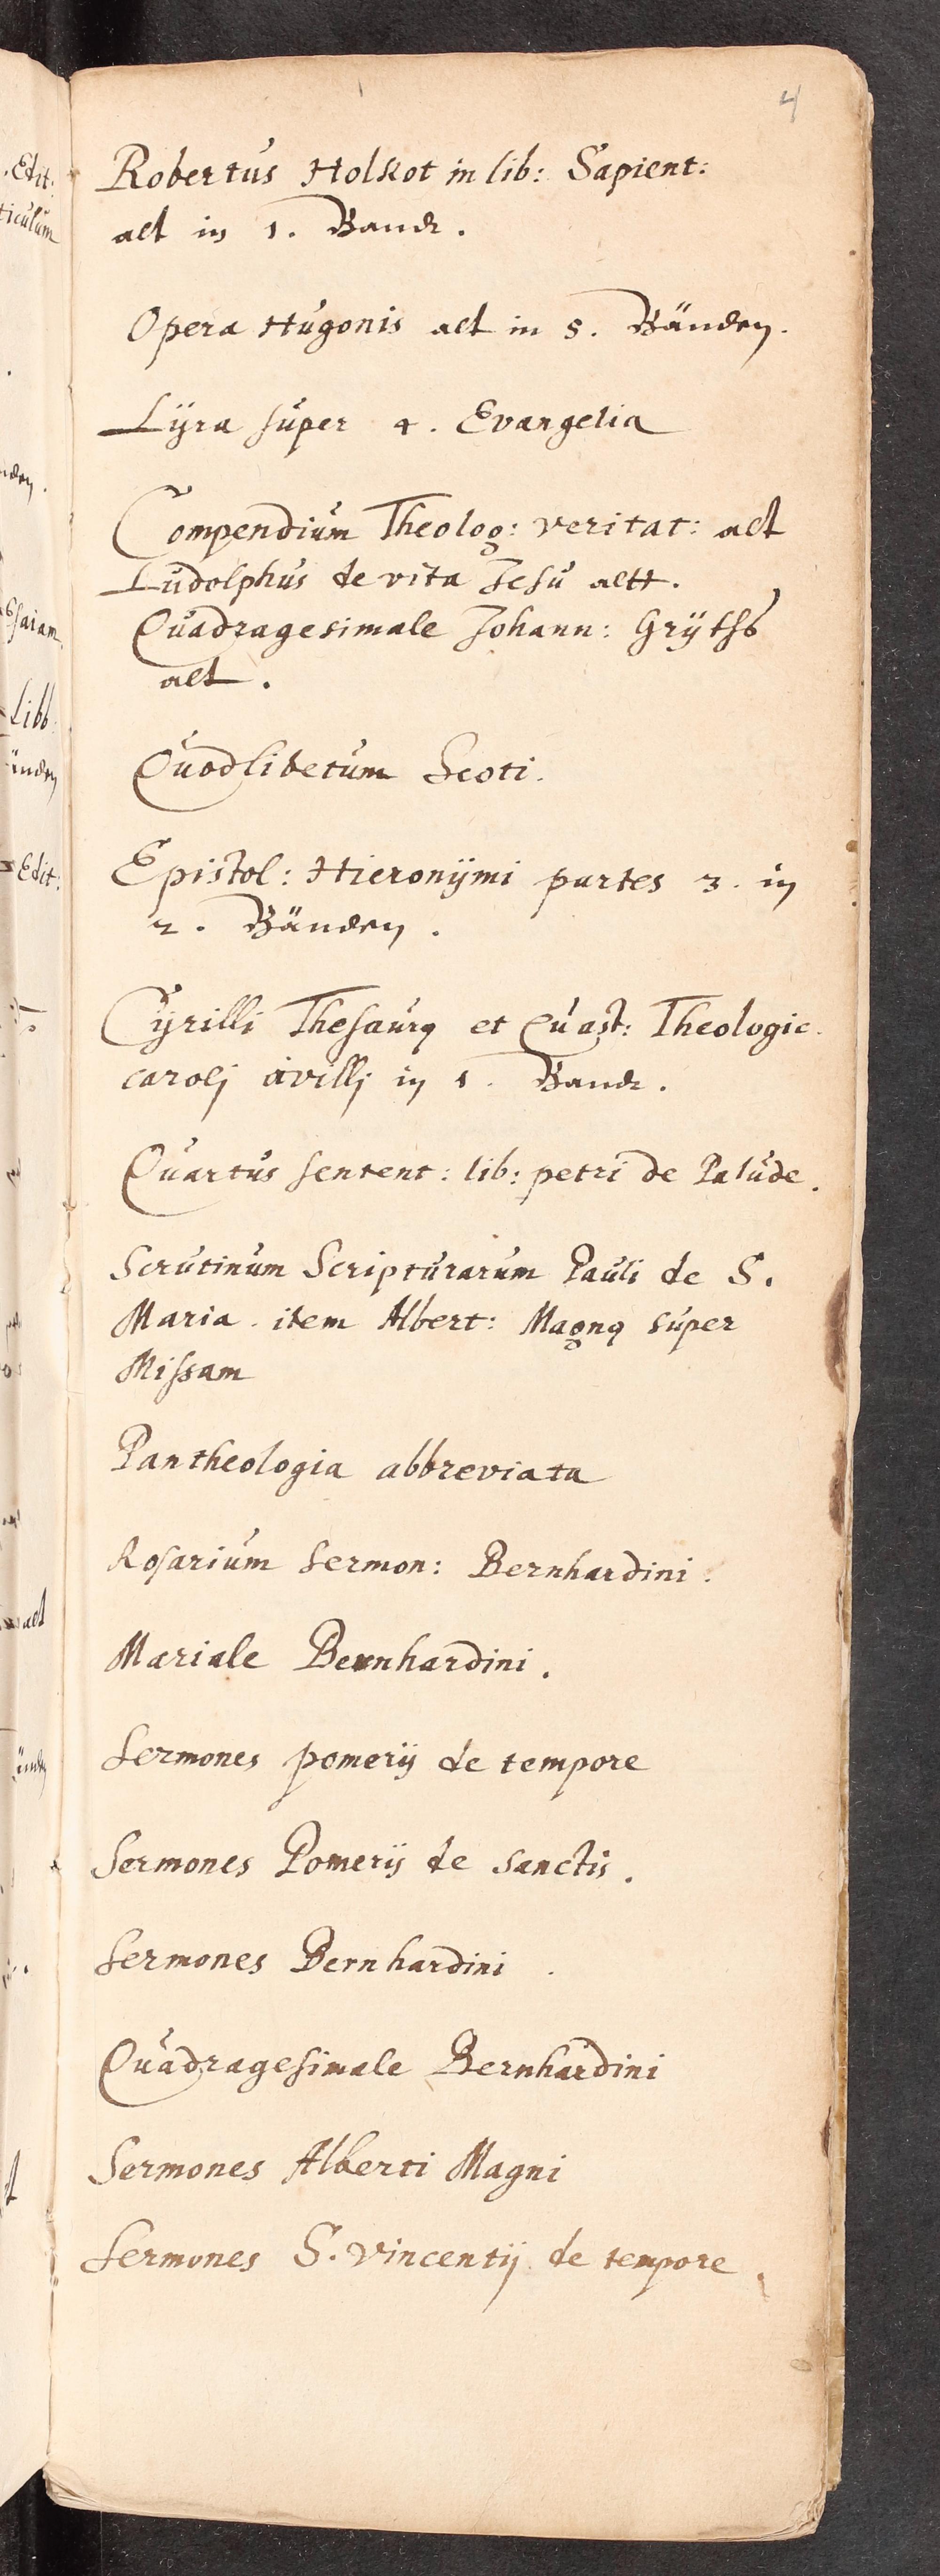 4
Robertus Holkot in lib: Sapient:
alt in 1. Bandt.
Opera Hugonis alt in 5. Bänden.
Lÿra super 4. Evangelia
Compendium Theolog: veritat: alt
Ludolphus de vita Jesu altt.
Quadragesimale Johann: Grÿtsß
alt.
Quodlibetum Scoti.
Epistol: Hieronÿmi partes 3. in
2. Bänden.
Cÿrilli Thesaurq et Quæst: Theologic.
carolj avillj in 1. Bandt.
Quartus sentent: lib: petri de Palude.
Scrutinum Scripturarum Pauli de S.
Maria. item Albert: Magnq super
Missam
Pantheologia abbreviata
Rosarium sermon: Bernhardini.
Mariale Bernhardini.
Sermones pomerij de tempore
Sermones Pomerij de sanctis.
Sermones Bernhardini.
Quadragesimale Bernhardini
Sermones Alberti Magni
Sermones S. vincentij de tempore.